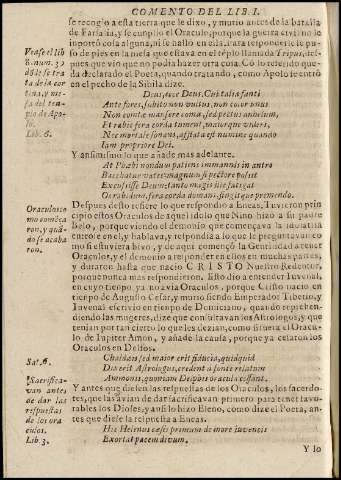 COMENTO DEL LIB. I.
se recogio a esta tierra que le dixo, y murio antes de la batalla
de Farsalia, y se cumplio el Oraculo, porque la guerra ciuil no le
importò cosa alguna, ni se hallo en ella. Para responder se pu-
so de pies en la mesa que estaua en el teplo llamada Tripus, des-
pues que vio que no podia hazer otra cosa. Cō lo referido que-
da declarado el Poeta, quando tratando, como Apolo le entrò
en el pecho de la Sibila dize.
Vease el lib
8. num. 32
dōde se tra
ta de la cor
tina, y me-
sa del tem-
plo de Apo-
lo.
Lib. 6.
Deus, ecce Deus. Cui talia fanti
Ante fores, subito non vultus, non color vnus
Non comtæ mansere comæ, sed pectus anhelum,
Et rabie fera corda tument, maiorque videri,
Nec mortale sonans, afflata est numine quando
Iam propriore Dei.
Y ansimismo lo que añade mas adelante.
At Phœbi nondum patiens immanis in antro
Bacchatur vates magnum si pectore possit
Excussisse Deum: tanto magis ille fatigat
Os rabidum, fera corda domans, fingitque premendo.
Despues desto refiere lo que respondio a Eneas. Tuuieron prin
cipio estos Oraculos de aquel idolo que Nino hizo a su padre
Belo, porque viendo el demonio que començaua la idolatria
entro en el, y hablaua, y respondia a lo que le preguntauan co
mo si estuuiera biuo, y de aqui començò la Gentilidad a tener
Oraculos, y el demonio a responder en ellos en muchas partes,
y duraron hasta que nacio CRISTO Nuestro Redentor,
porque nunca mas respondieron. Esto dio a entender Iuuenal,
en cuyo tiempo ya no auia Oraculos, porque Cristo nacio en
tiempo de Augusto Cesar, y murio siendo Emperador Tiberio, y
Iuuenal escriuio en tiempo de Domiciano, quando reprehen-
diendo las mugeres, dize que consultauan los Astrologos, y que
tenian por tan cierto lo que les dezian, como si fuera el Oracu-
lo de Iupiter Amon, y añade la causa, porque ya cesaron los
Oraculos en Delfos.
Oraculos co
mo comēça
ron, y quā-
do se acaba
ron.
Chaldæis sed maior erit fiducia, quidquid
Dixerit Astrologus, credent a fonte relatum
Ammonis, quoniam Delphis oracula cessant.
Sat. 6.
Y antes que diessen las respuestas de los Oraculos, los sacerdo-
tes, que las auian de dar sacrificauan primero para tener fauo-
rables los Dioses, y ansi lo hizo Eleno, como dize el Poeta, an-
tes que diesse la respuesta a Eneas.
Sacrifica-
van antes
de dar las
respuestas
de los ora
culos.
Lib. 3.
Hic Helenus cæsis primum de more iuuencis
Exorat pacem diuum.
Y lo